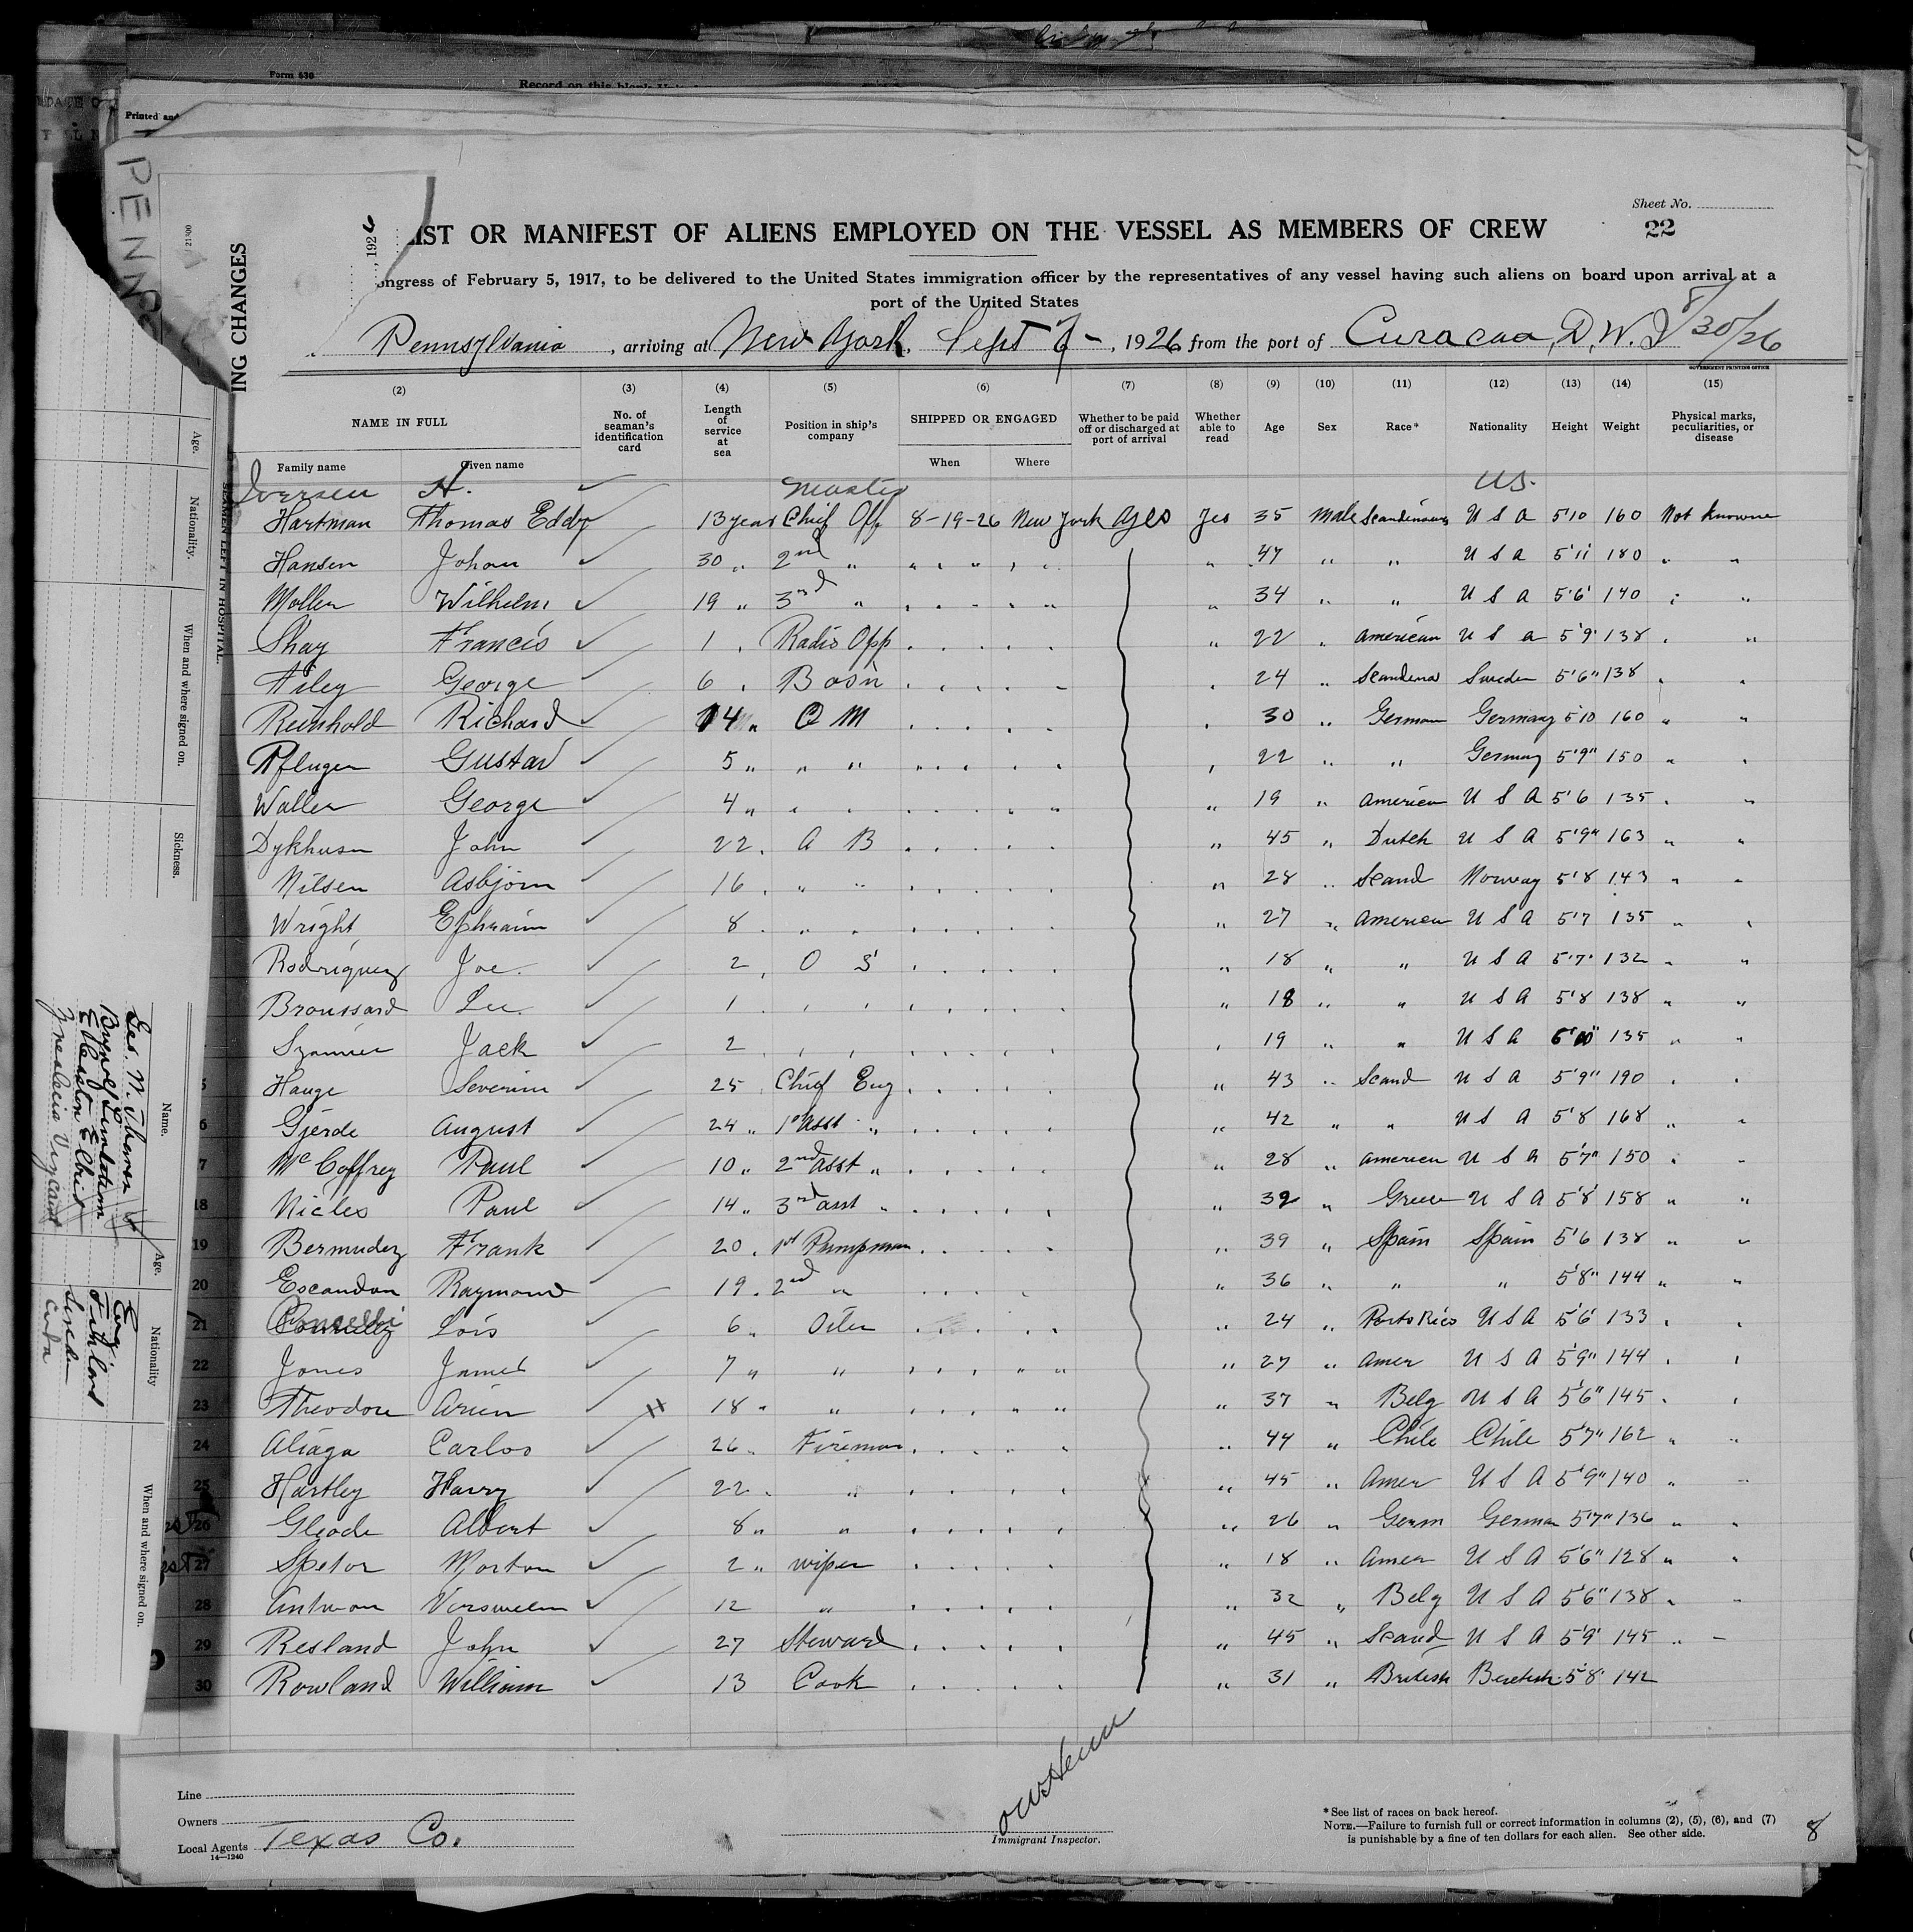 Form 630
Record on this blank
Printed and
PENNS
, 1926
ING CHANGES
Sheet No.
22
LIST OR MANIFEST OF ALIENS EMPLOYED ON THE VESSEL AS MEMBERS OF CREW
ongress of February 5, 1917, to be delivered to the United States immigration officer by the representatives of any vessel having such aliens on board upon arrival at a
port of the United States
Pennsylvania, arriving at New York, Sept 7-, 1926 from the port of Curacao, D.W.I 8/30/26
GOVERNMENT PRINTING OFFICE
(2) (3) (4) (5) (6) (7) (8) (9) (10) (11) (12) (13) (14) (15)
NAME IN FULL No. of seaman's identification card Length of service at sea Position in ship's company SHIPPED OR ENGAGED Whether to be paid off or discharged at port of arrival Whether able to read Age Sex Race* Nationality Height Weight Physical marks, peculiarities, or disease
Family name Given name When Where
Iversen H. ✓ Master U.S.
Hartman Thomas Eddy 13 years Chief Off 8-19-26 New York yes Yes 35 Male Scandinavn U S A 5'10 160 Not Known
Hansen Johan ✓ 30 " 2nd " " 47 " " U S A 5'11 180 " "
Moller Wilhelm ✓ 19 " 3rd " " 34 " " U S A 5'6' 140 " "
Shay Francis ✓ 1 Radio Opp " 22 " American U S A 5'9' 138 "
George 6 Bosn 24 " Scandena Sweden 5'6" 138
Reinhold Richard ✓ 14 " Q M 30 " German Germany 5'10 160 " "
Pfluger Gustav ✓ 5 " " " 22 " " Germany 5'9" 150 "
Waller George ✓ 4 " " 19 " American U S A 5'6 135 "
Dykhusn John ✓ 22 A B " 45 " Dutch U S A 5'9" 163 " "
Nilsen Asbjorn ✓ 16 " " " 28 " Scand Norway 5'8 143 " "
Wright Ephraim ✓ 8 " " " 27 " American U S A 5'7 135 "
Rodriguez Joe ✓ 2 O S " 18 " " U S A 5'7' 132 " "
Broussard Lee ✓ 1 " 18 " " U S A 5'8 138 " "
Jack ✓ 2 19 " " U S A 135 " "
Hauge Severin ✓ 25 Chief Eng " 43 " Scand U S A 5'9" 190
6 Gjerde August ✓ 24 " 1st Asst " " 42 " " U S A 5'8 168 "
7 McCoffrey Paul ✓ 10 " 2nd asst " " 28 " American U S A 5'7" 150
18 Nicles Paul ✓ 14 " 3rd asst " " 39 " Greece U S A 5'8' 158 " "
19 Bermudez Frank ✓ 20 1st Pumpman " 39 " Spain Spain 5'6 138 " "
20 Escandon Raymond ✓ 19 2nd " " 36 " " " 5'8" 144 " "
21 Lois ✓ 6 " Oiler " 24 " Porto Rico U S A 5'6' 133
22 Jones James ✓ 7 " " " 27 " Amer U S A 5'9" 144
23 Theodore Arien ✓ 18 " " " 37 " Belg U S A 5'6" 145
24 Aliaga Carlos ✓ 26 " Fireman " 44 " Chile Chile 5'7" 162 " "
25 Hartley Harry ✓ 22 " " 45 " Amer U S A 5'9" 140 " "
26 Gleode Albert ✓ 8 " " " 26 " Germ German 5'7" 136 " "
27 Spetor Morton ✓ 2 " wiper " 18 " Amer U S A 5'6" 128 " "
28 Antwon ✓ 12 " " 32 " Belg U S A 5'6" 138 " "
29 Resland John ✓ 27 Steward " 45 " Scand U S A 5'9' 145 "
30 Rowland William ✓ 13 Cook " 31 " British 5'8' 142
Line
Owners
Local Agents Texas Co.
14—1240
Immigrant Inspector.
*See list of races on back hereof.
NOTE.—Failure to furnish full or correct information in columns (2), (5), (6), and (7)
is punishable by a fine of ten dollars for each alien. See other side.
8
SEAMEN LEFT IN HOSPITAL.
Age.
Nationality.
When and where signed on.
Sickness.
Name.
Age.
Nationality
When and where signed on.
Eng
Finland
Sweden
Cuba